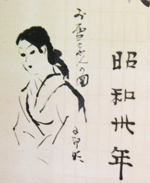 昭和卅年
お雪さんの図